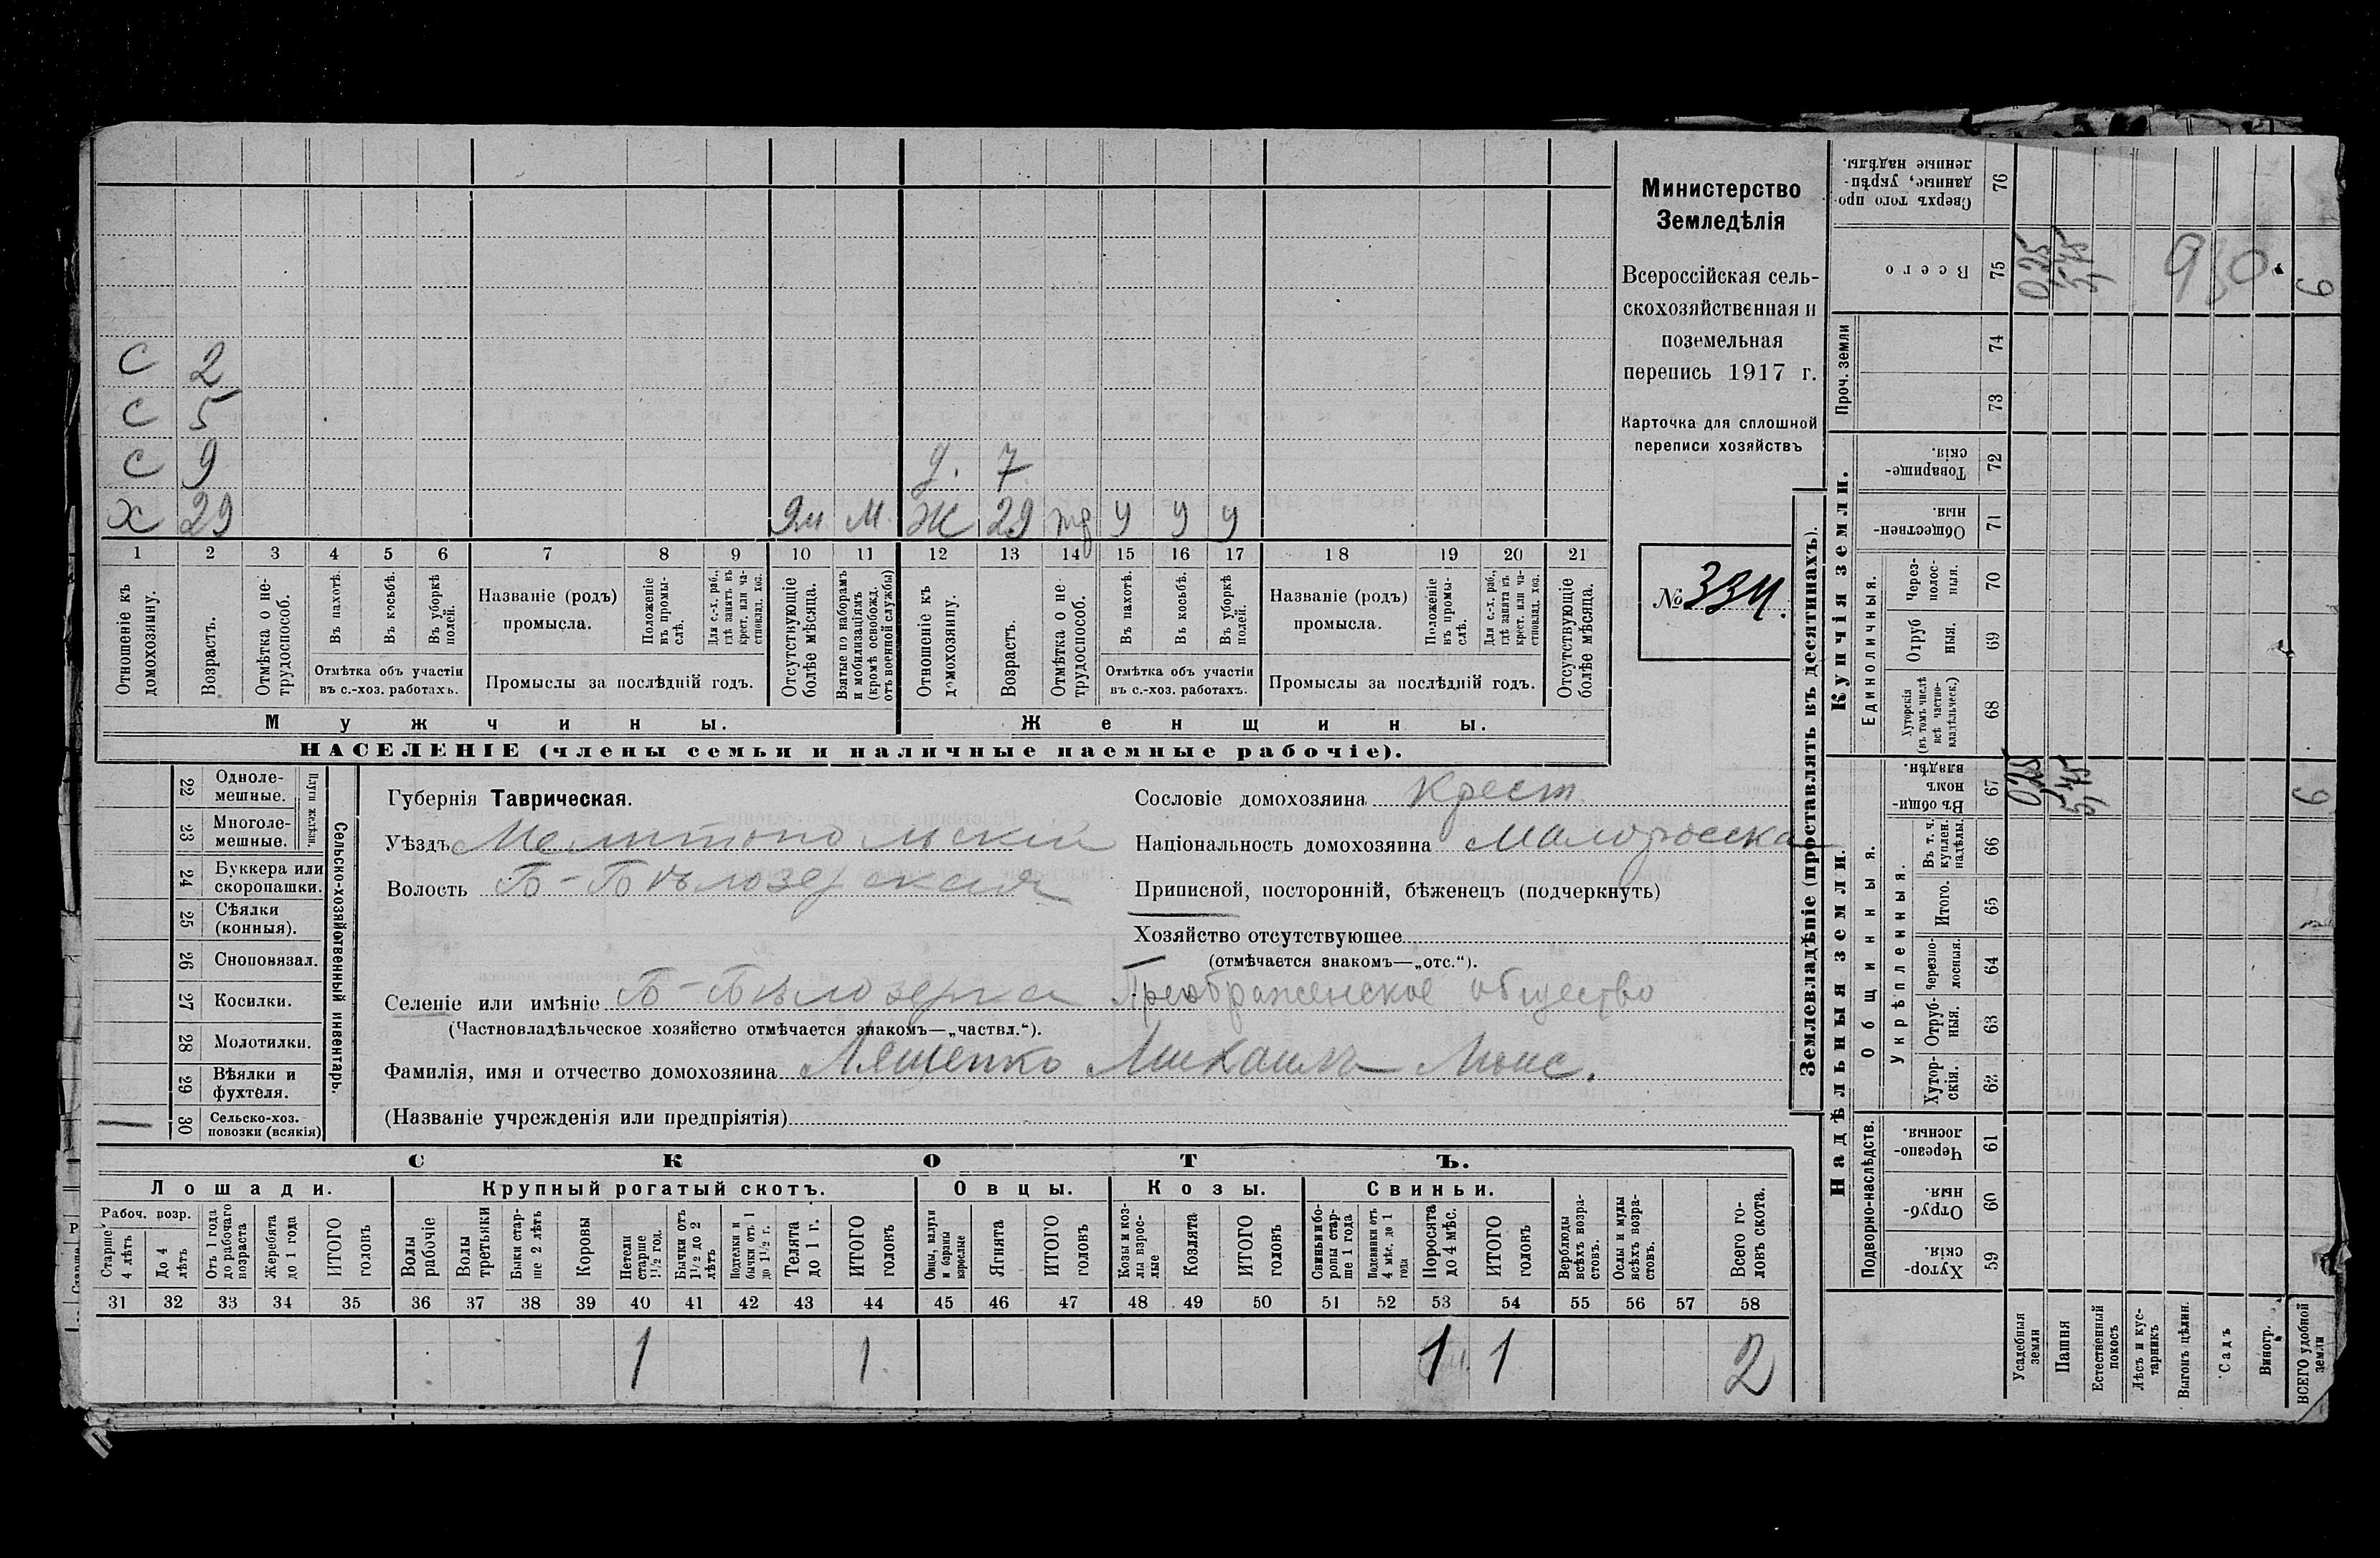 С 2
С 5
С 9 Д. 7
Х 29 М Ж 29 У У У
1 2 3 4 5 6 7 8 9 10 11 12 13 14 15 16 17 18 19 20 21
Отношеніе къ домохозяину.
Возрастъ.
Отмѣтка о не-трудоспособ.
Въ пахотѣ.
Въ косьбѣ.
Въ уборкѣ полей.
Отмѣтка объ участіи
въ с.-хоз. работахъ.
Названіе (родъ)
промысла.
Положеніе въ промы-слѣ.
Для с.-х. раб., гдѣ занятъ въ крест. или ча-стновлад. хоз.
Промыслы за послѣдній годъ.
Отсутствующіе болѣе мѣсяца.
Взятые по наборамъ и мобилизаціямъ (кромѣ освобожд. отъ военной службы)
Отношеніе къ домохозяину.
Возрастъ.
Отмѣтка о не-трудоспособ.
Въ пахотѣ.
Въ косьбѣ.
Въ уборкѣ полей.
Отмѣтка объ участіи
въ с.-хоз. работахъ.
Названіе (родъ)
промысла.
Положеніе въ промы-слѣ.
Для с.-х. раб., гдѣ занята въ крест. или ча-стновлад. хоз.
Промыслы за послѣдній годъ.
Отсутствующіе болѣе мѣсяца.
Мужчины. Женщины.
НАСЕЛЕНІЕ (члены семьи и наличные наемные рабочіе).
Министерство
Земледѣлія
Всероссійская сель-
скохозяйственная и
поземельная
перепись 1917 г.
Карточка для сплошной
переписи хозяйствъ
№ 334.
22 Одноле-мешные.
23 Многоле-мешные.
Плуги желѣзн.
24 Буккера или скоропашки.
25 Сѣялки (конныя).
26 Сноповязал.
27 Косилки.
28 Молотилки.
29 Вѣялки и фухтеля.
30 Сельско-хоз. повозки (всякія)
Сельско-хозяйственный инвентарь.
Губернія Таврическая.
Уѣздъ Мелитопольскій
Волость Б-Бѣлозерская
Сословіе домохозяина крест.
Національность домохозяина малоросска
Приписной, посторонній, бѣженецъ (подчеркнуть)
Хозяйство отсутствующее
(отмѣчается знакомъ—„отс.“).
Селеніе или имѣніе Б-Бѣлозерка Преображенское общество
(Частновладѣльческое хозяйство отмѣчается знакомъ—„частвл.“).
Фамилія, имя и отчество домохозяина Лященко Михаилъ
(Названіе учрежденія или предпріятія)
СКОТЪ.
Лошади. Крупный рогатый скотъ. Овцы. Козы. Свиньи.
Рабоч. возр.
Старше 4 лѣтъ
До 4 лѣтъ
Отъ 1 года до рабочаго возраста
Жеребята до 1 года
ИТОГО головъ
Волы рабочіе
Волы третьяки
Быки стар-ше 2 лѣтъ
Коровы
Нетели старше 1½ год.
Бычки отъ 1½ до 2 лѣтъ
Подтелки и бычки отъ 1 до 1½ г.
Телята до 1 г.
ИТОГО головъ
Овцы, валухи и бараны взрослые
Ягнята
ИТОГО головъ
Козы и коз-лы взрос-лые
Козлята
ИТОГО головъ
Свиньи и бо-ровы стар-ше 1 года
Подсвинки отъ 4 мѣс. до 1 года
Поросята до 4 мѣс.
ИТОГО головъ
Верблюды всѣхъ возра-стовъ.
Ослы и мулы всѣхъ возра-стовъ.
Всего го-ловъ скота.
31 32 33 34 35 36 37 38 39 40 41 42 43 44 45 46 47 48 49 50 51 52 53 54 55 56 57 58
1 1 1 1 2
Землевладѣніе (проставлять въ десятинахъ).
Надѣльныя земли. Купчія земли. Проч. земли
Подворно-наслѣдств. Общинныя. Единоличныя.
Укрѣпленныя.
Хутор-скія. 59
Отруб-ныя. 60
Черезпо-лосныя. 61
Хутор-скія. 62
Отруб-ныя. 63
Черезпо-лосныя. 64
Итого. 65
Въ т. ч. куплен. надѣлы. 66
Въ общин-номъ владѣн. 67
Хуторскія (въ томъ числѣ всѣ частно-владѣльческ.) 68
Отруб ныя. 69
Через-полос-ныя. 70
Обществен-ныя. 71
Товарище-скія. 72
73
74
Всего 75
Сверхъ того про-данные, укрѣп-ленные надѣлы. 76
Усадебныя земли 0,25 0,25
Пашня 5,75 5,75
Естественный покосъ
Лѣсъ и кус-тарникъ
Выгонъ цѣлин.
Садъ
Виногр.
ВСЕГО удобной земли 6 6